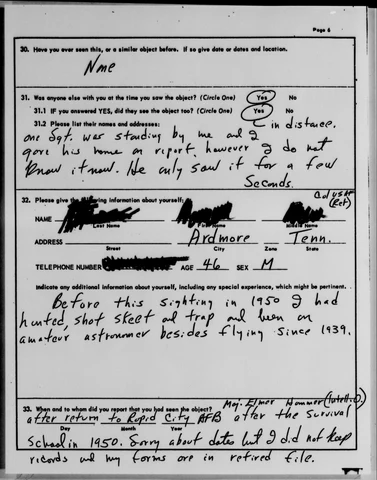 Page 6
30. Have you ever seen this, or a similar object before. If so give date or dates and location.
None
31. Was anyone else with you at the time you saw the object? (Circle One) Yes No
31.1 IF you answered YES, did they see the object too? (Circle One) Yes No
31.2 Please list their names and addresses: in distance.
one Sgt. was standing by me and I
gave his name on report however I do not
know it now. He only saw it for a few
Seconds.
32. Please give the following information about yourself: Col USAF
(Ret)
NAME
Last Name First Name Middle Name
ADDRESS Ardmore Tenn.
Street City Zone State
TELEPHONE NUMBER AGE 46 SEX M
Indicate any additional information about yourself, including any special experience, which might be pertinent.
Before this sighting in 1950 I had
hunted, shot skeet and trap and been an
amateur astronomer besides flying since 1939.
Maj. Elmer Hammer (Intell.O.)
33. When and to whom did you report that you had seen the object?
after return to Rapid City AFB after the Survival
Day Month Year
School in 1950. Sorry about dates but I did not keep
records and my forms are in retired file.